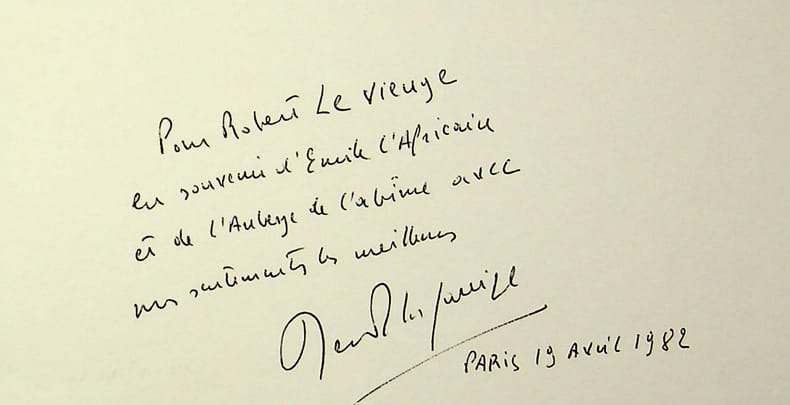 Pour Robert Le Vieuge
en souvenir d'Emile l'Africain
et de l'Auberge de l'abîme avec
mes sentiments les meilleurs
PARIS 19 Avril 1982